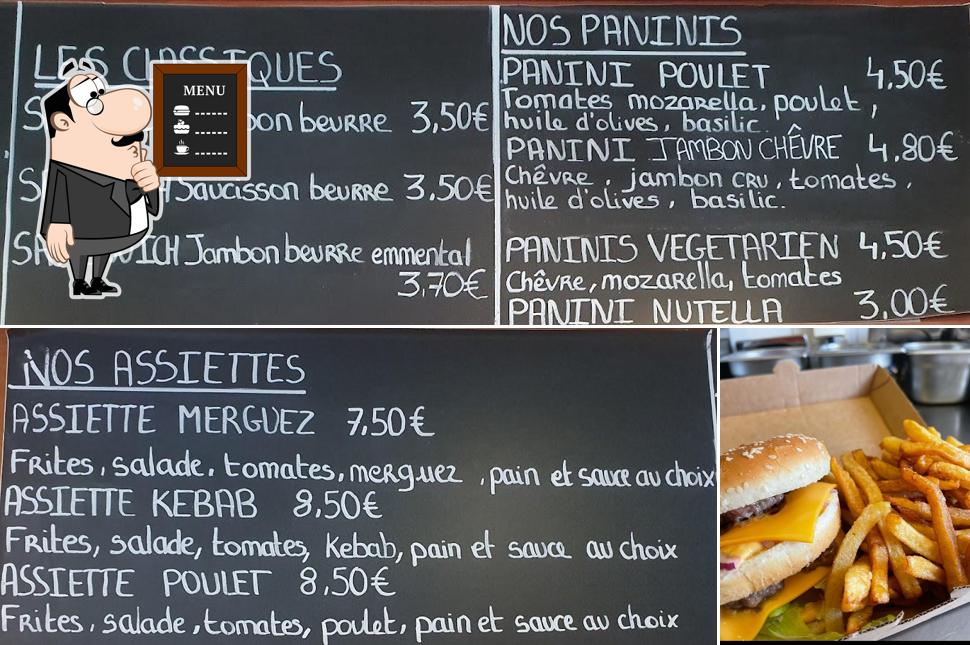 LES CLASSIQUES
bon beurre 3,50€
Saucisson beurre 3.50€
Jambon beurre emmental
3,70€
MENU
NOS PANINIS
PANINI POULET 4,50€
Tomates mozarella, poulet,
huile d'olives, basilic.
PANINI JAMBON CHÊVRE 4,80€
Chêvre, jambon cru, tomates,
huile d'olives, basilic.
PANINIS VEGETARIEN 4,50€
Chêvre, mozarella, tomates
PANINI NUTELLA 3,00€
NOS ASSIETTES
ASSIETTE MERGUEZ 7,50€
Frites, salade, tomates, merguez, pain et sauce au choix
ASSIETTE KEBAB 8,50€
Frites, salade, tomates, Kebab, pain et sauce au choix
ASSIETTE POULET 8,50€
Frites, salade, tomates, poulet, pain et sauce au choix